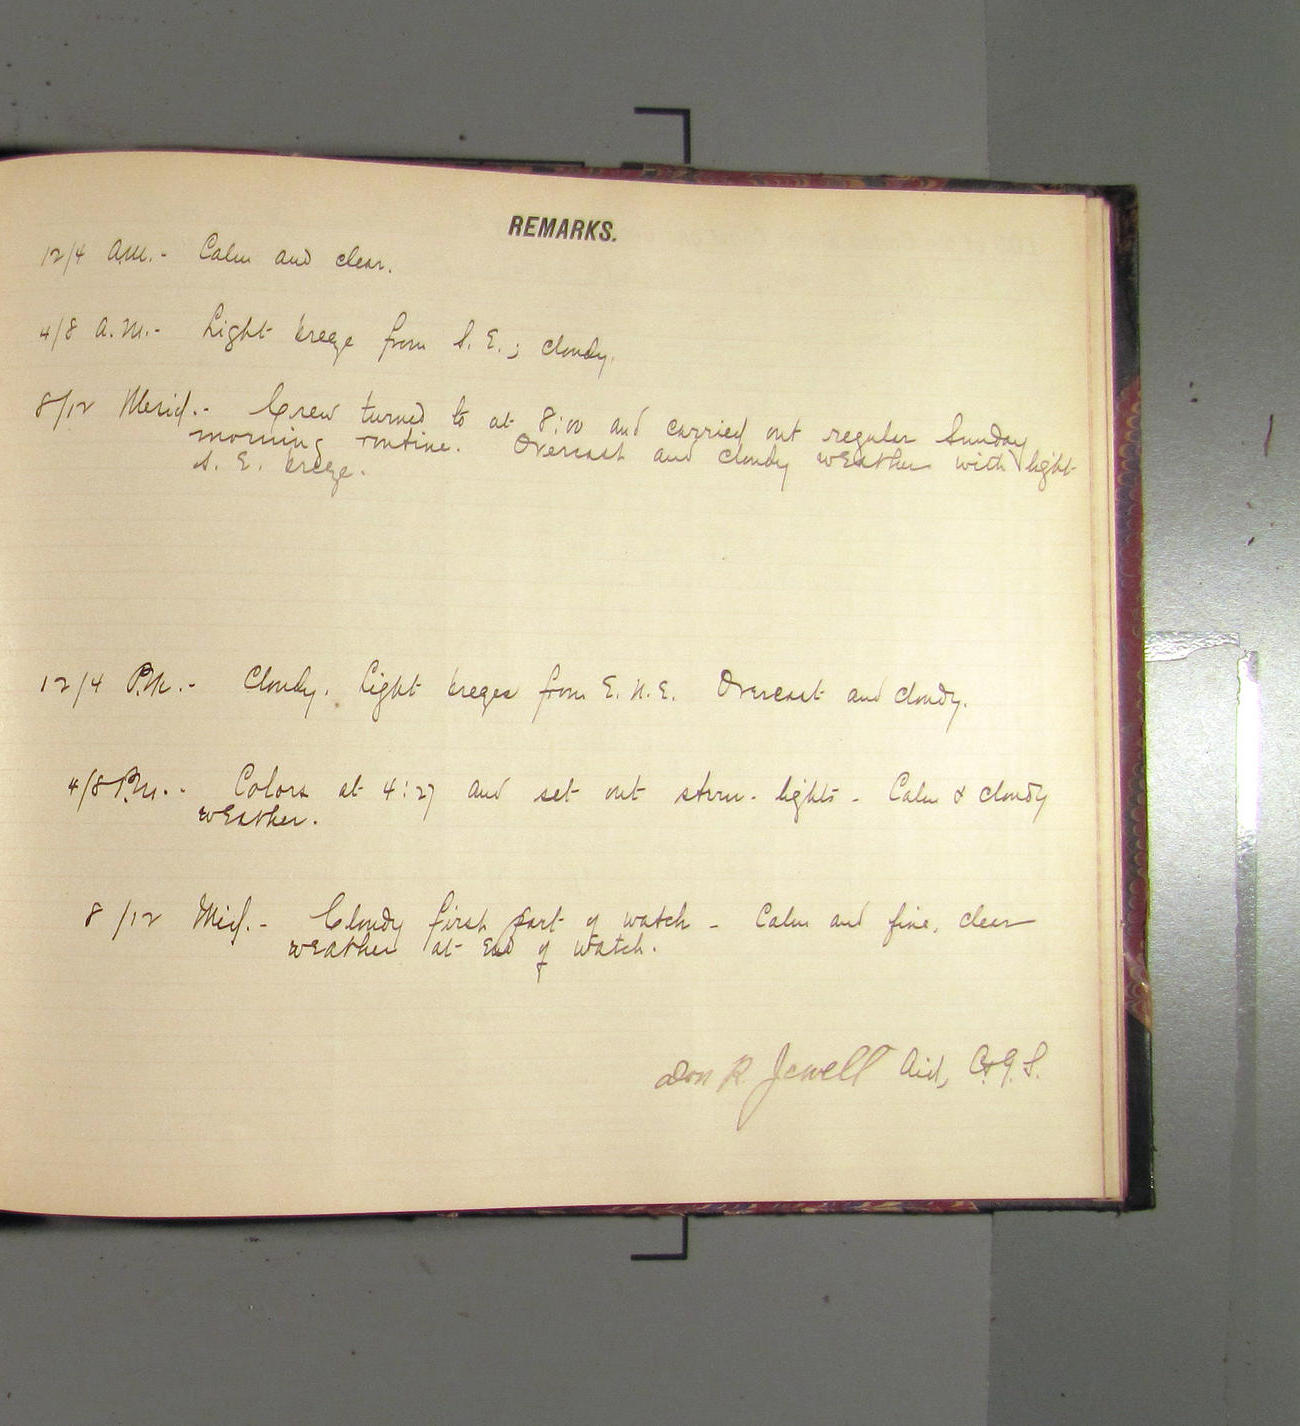 REMARKS.
12/4 A.M.- Calm and clear.
4/8 A.M.- Light breeze from S. E.; cloudy.
8/12 Merid.- Crew turned to at 8:00 and carried out regular Sunday
morning routine. Overcast and cloudy weather with light
S. E. breeze.
12/4 P.M.- Cloudy. Light breezes from E. N. E. Overcast and cloudy.
4/8 P.M.- Colors at 4:27 and set out stern-lights - Calm & cloudy
weather.
8/12 Mid.- Cloudy first part of watch - Calm and fine, clear
weather at end of watch.
Don R Jewell Aid, C.&G.S.